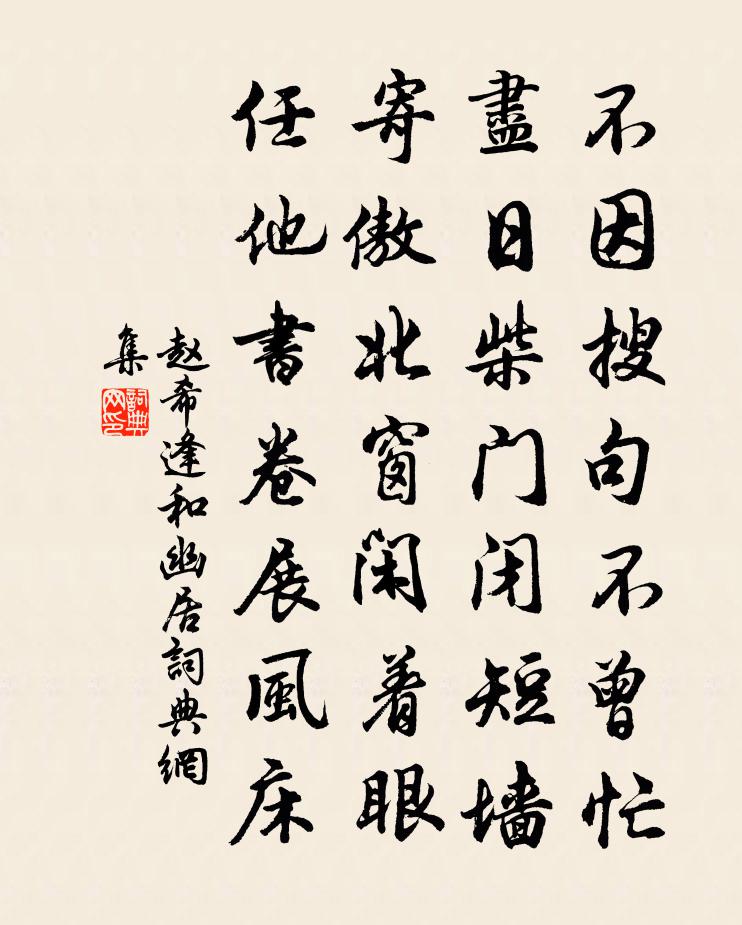 不因搜句不曾忙
盡日柴门闭短墙
寄傲北窗閑着眼
任他書卷展風床
赵希逢和幽居詞典網
集
詞典网印